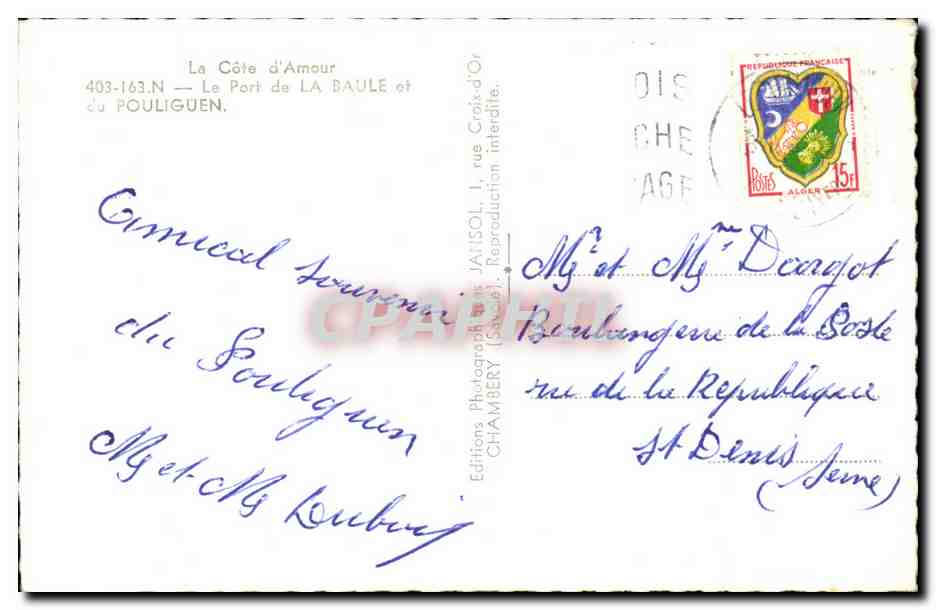 La Côte d'Amour
403-163.N — Le Port de LA BAULE et
du POULIGUEN.
Amical souvenir
du Pouliguen
Mr et Me Dubois
Editions Photographiques JANSOL, 1, rue Croix-d'Or
CHAMBERY (Savoie). Reproduction interdite.
CPARAMA
OIS
CHE
AGE
REPUBLIQUE FRANÇAISE
POSTES
ALGER
15F
Mr et Mme Dargot
Boulangerie de la Poste
rue de la République
St Denis
(Seine)